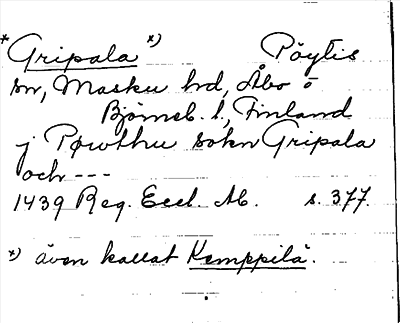 * Gripala *) Pöytis
sn, Masku hd, Åbo o
Björneb. l., Finland
j Pøwthu sokn Gripala
och ---
1439 Reg. Eccl. Ab. s. 377.
*) även kallat Kemppilä.